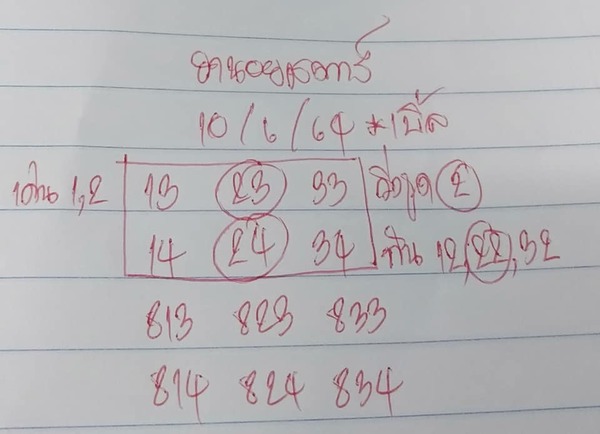 ฮานอยสตาร์
10/6/64 *เบิ้ล
เด่น 1,2 13 23 33 สิ่งรูด 2
14 24 34 กัน 12,22,32
813 823 833
814 824 834